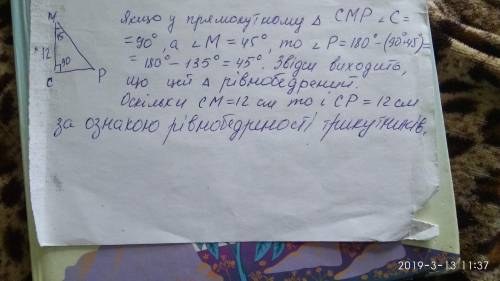 Якщо у прямокутному △ CMP ∠C =
= 90°, а ∠M = 45°, то ∠P = 180° - (90°+45°) =
= 180° - 135° = 45°. Звідки виходить,
що цей △ рівнобедрений.
Оскільки CM = 12 см то і CP = 12 см
за ознакою рівнобедреності трикутників.
M
45
12
90
C
P
2019-3-13 11:37